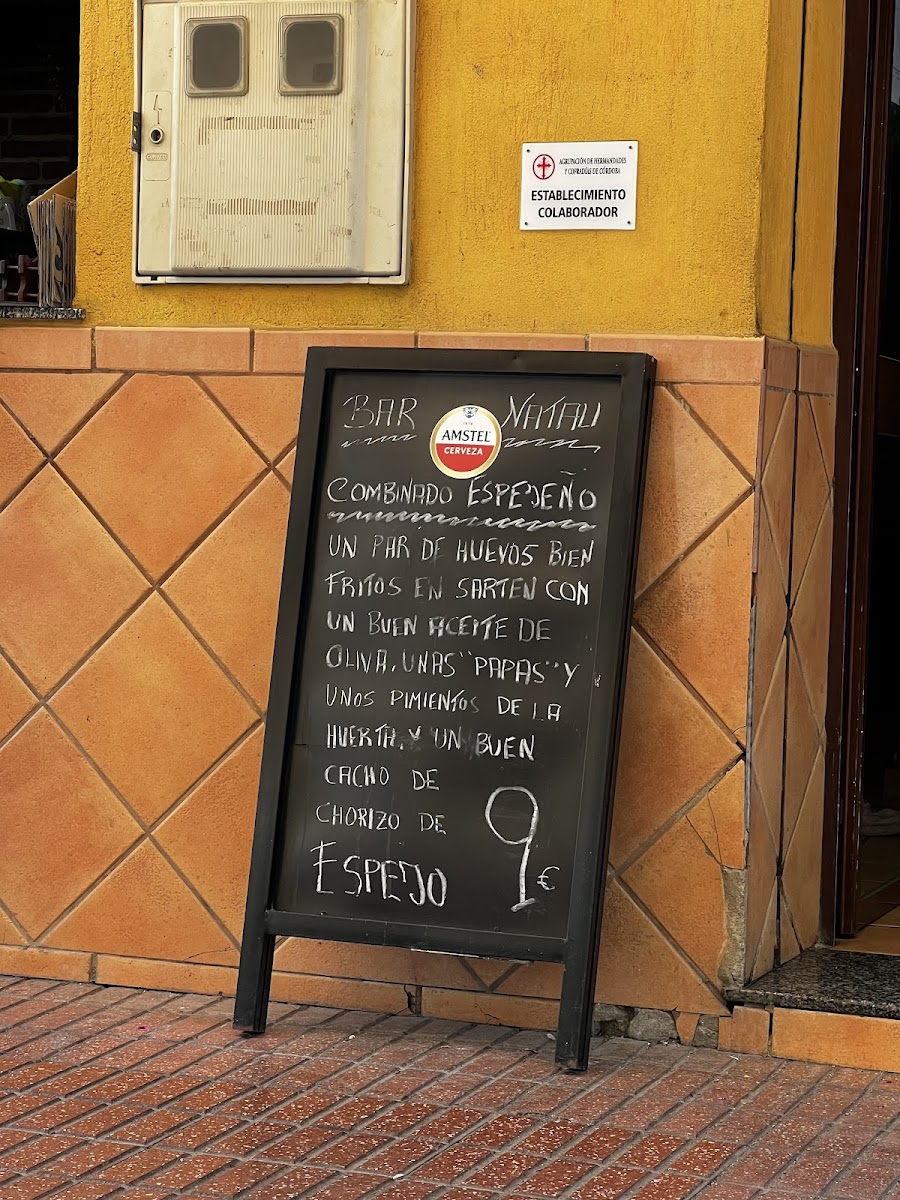 AGRUPACIÓN DE HERMANDADES
Y COFRADÍAS DE CÓRDOBA
ESTABLECIMIENTO
COLABORADOR
BAR NATALI
AMSTEL
CERVEZA
COMBINADO ESPEJEÑO
UN PAR DE HUEVOS BIEN
FRITOS EN SARTEN CON
UN BUEN ACEITE DE
OLIVA, UNAS "PAPAS" Y
UNOS PIMIENTOS DE LA
HUERTA, Y UN BUEN
CACHO DE
CHORIZO DE
ESPEJO
9 €